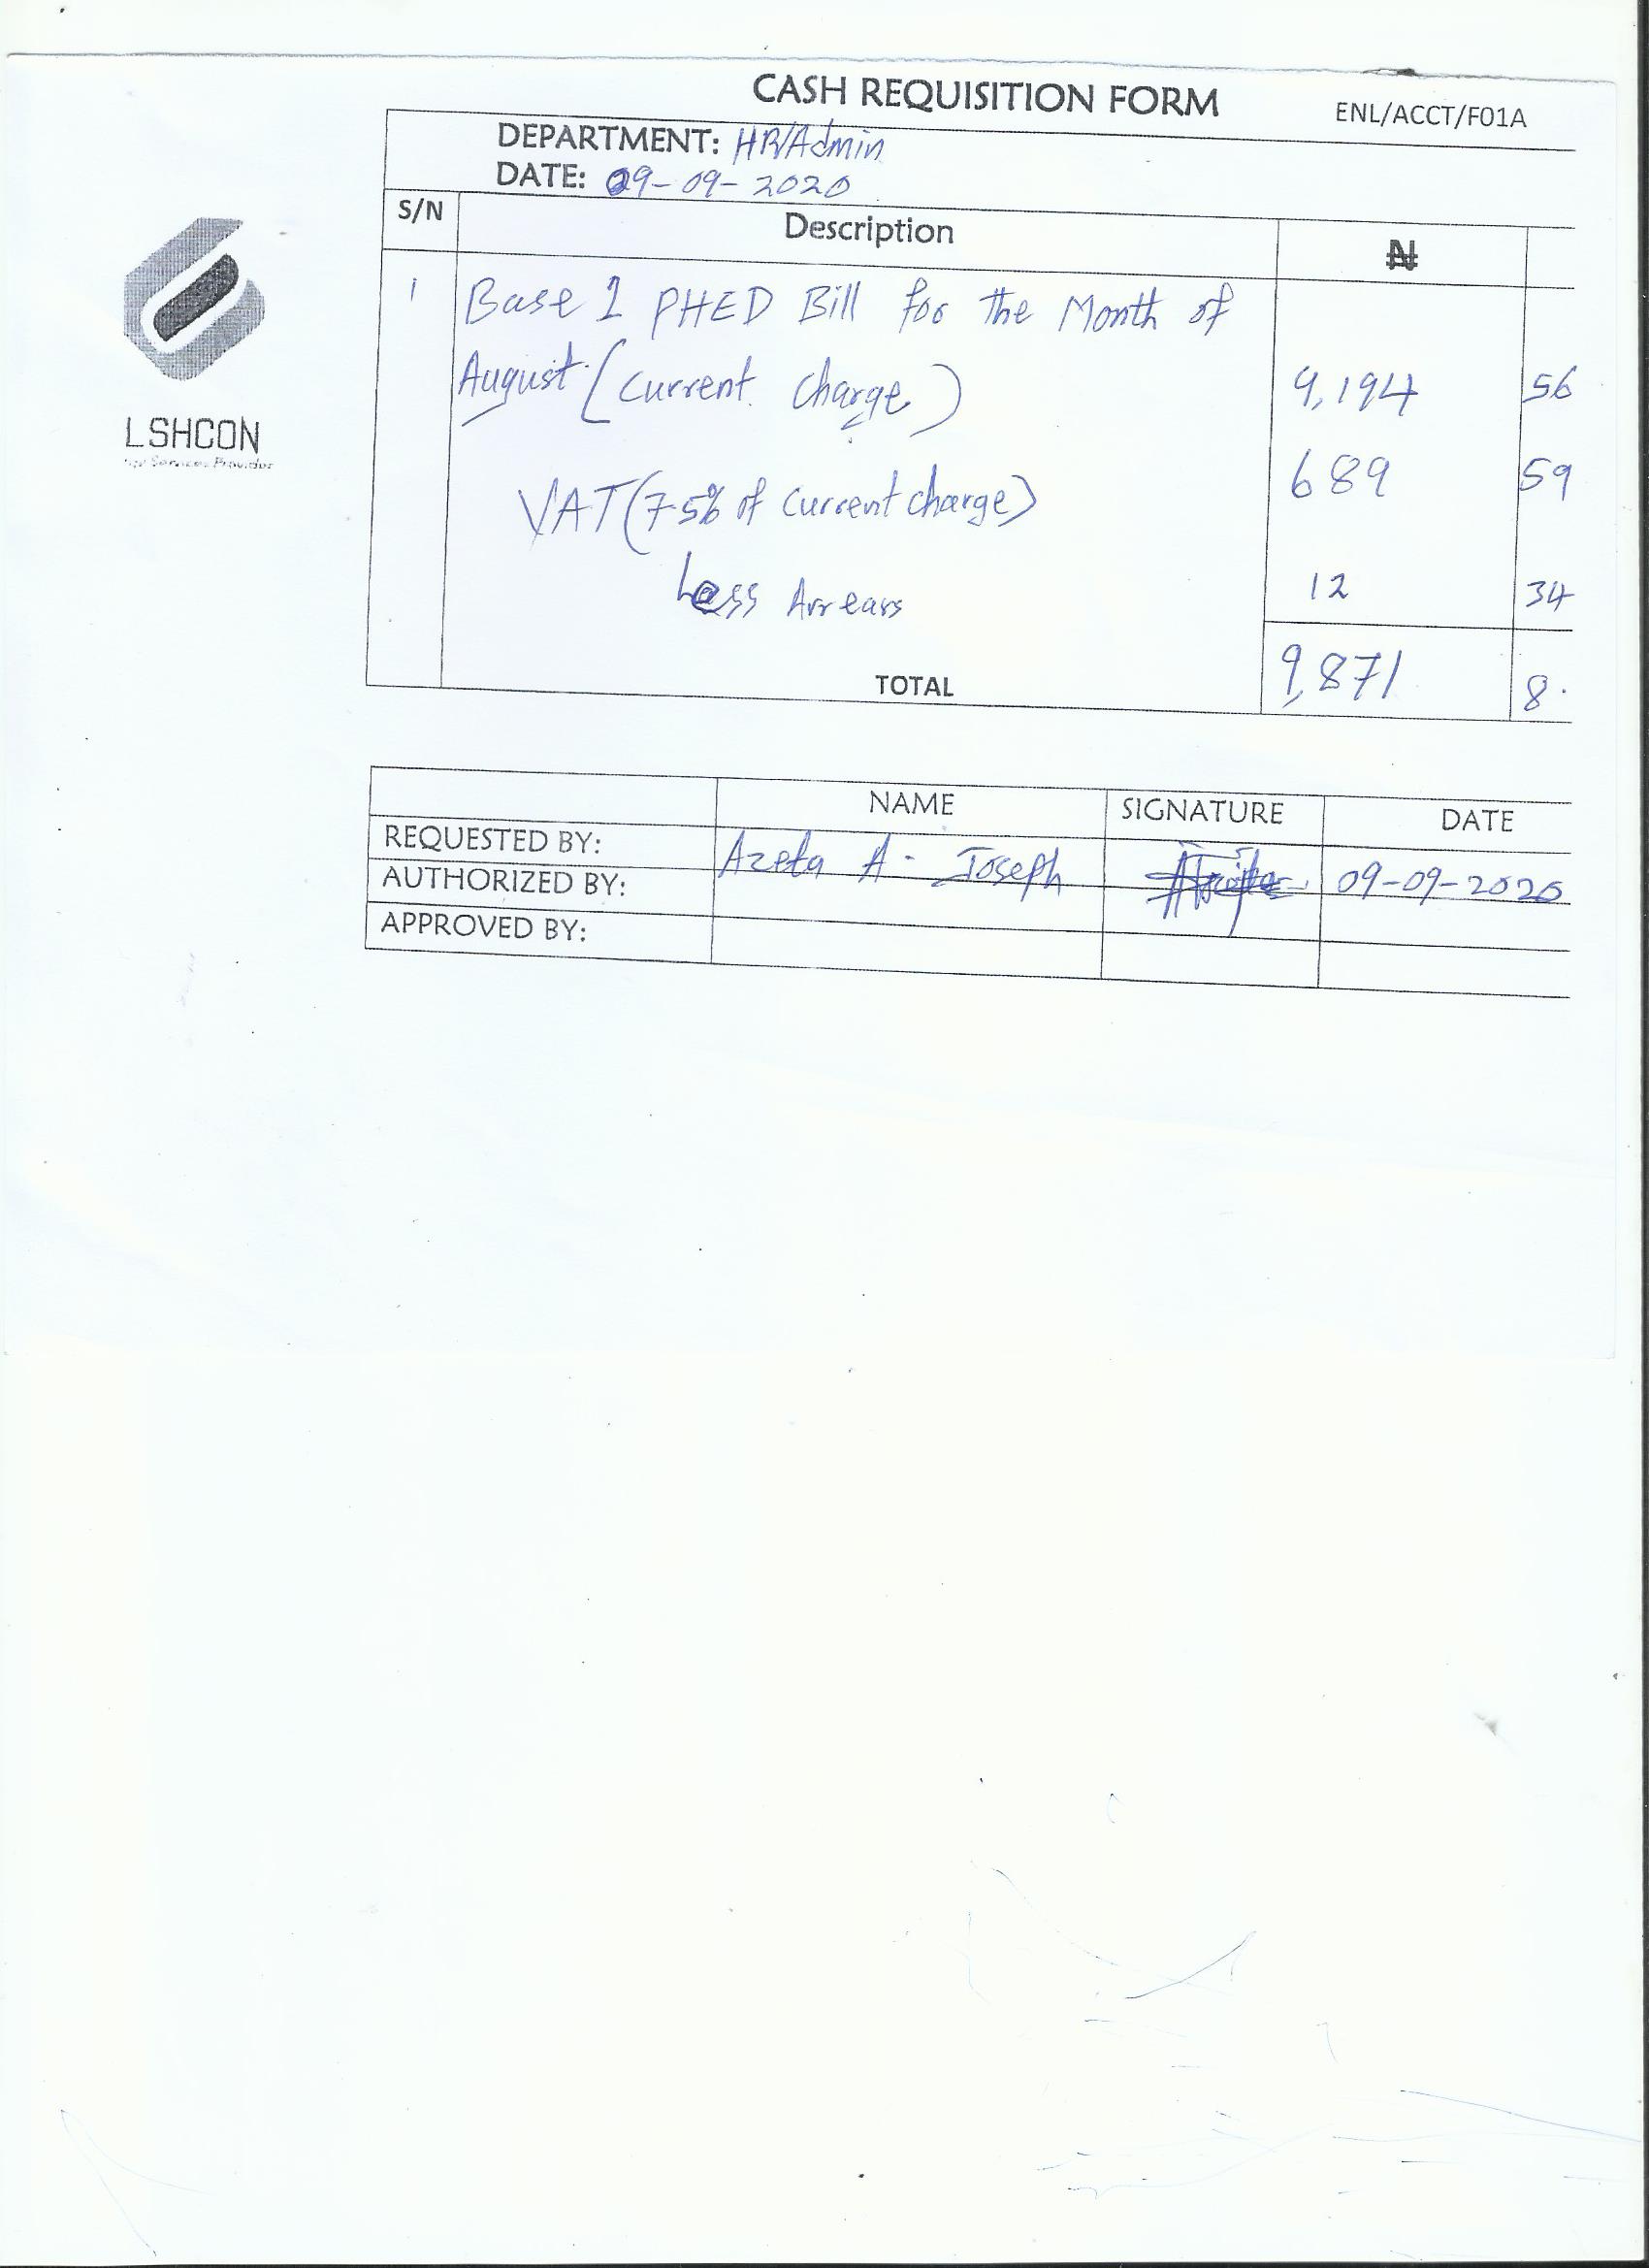 CASH REQUISITION FORM
ENL/ACCT/F01A
DEPARTMENT: HR/Admin
DATE: 09-09-2020
LSHCON
Services Provider
S/N Description ₦
1 Base 1 PHED Bill for the Month of
August (Current Charge) 9,194 56
VAT (7.5% of Current charge) 689 59
Less Arrears 12 34
TOTAL 9,871 8
NAME SIGNATURE DATE
REQUESTED BY: Azeta A. Joseph 09-09-2020
AUTHORIZED BY:
APPROVED BY: